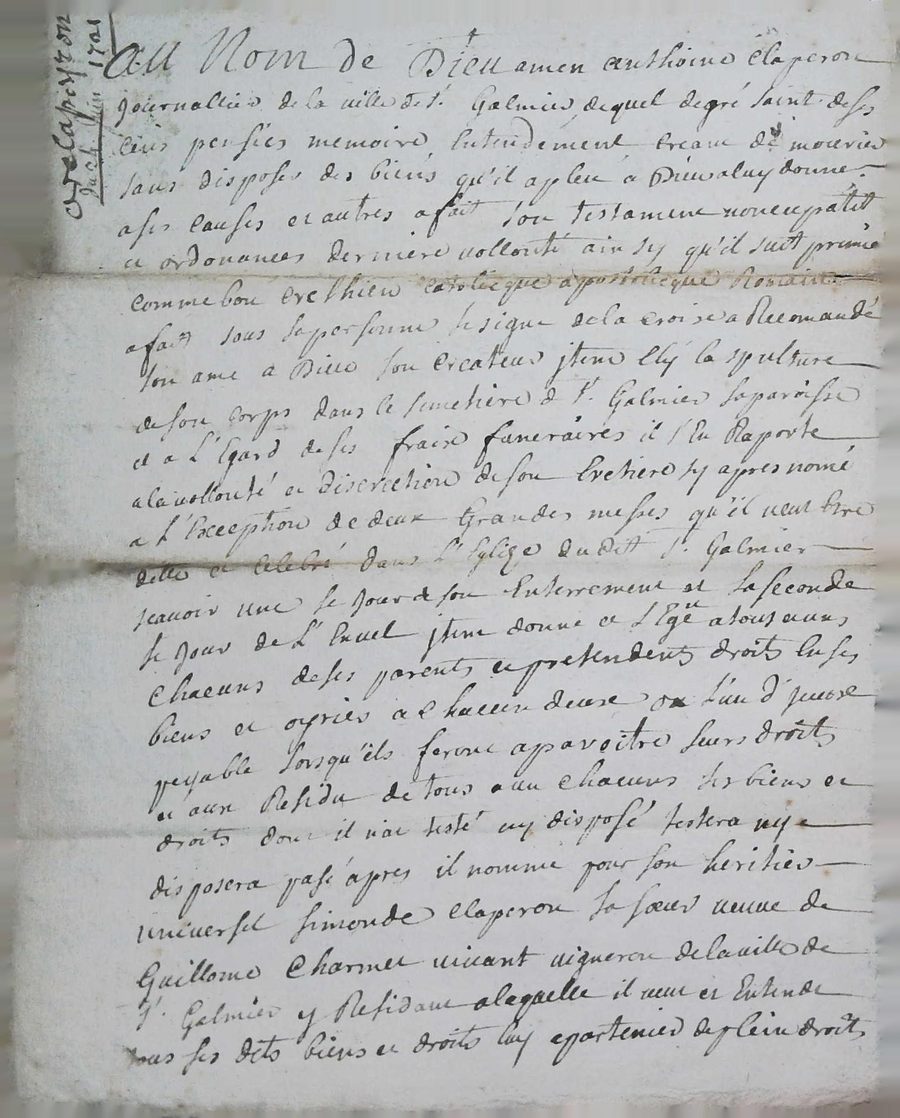 clapeyron
1721
Au Nom de Dieu amen anthoine claperon
Journallier de la ville de St. Galmier dequel degré saint de ses
cens pensées memoire Entendement creant de mourier
sans disposer des biens qu'il a pleu a Dieu a luy donner
a ses causes et autres a fait son testament noncupatit
et ordonances derniere vollonté ainsy qu'il suit primie
comme bon crethien catolicque apostolicque Romain
a fait sous sa personne le signe de la croise a Recomandé
son ame a Dieu son createur jtem Elÿ la spulture
de son corps dans le semethiere d St. Galmier sa paroisse
et a L'Egard de ses fraix funeraires il s'En Raporte
a la vollonté et discrethion de son Eretiere sy apres nomé
a L'Exception de deux Grandes messes qu'il veut Etre
ditte et celebré dans L'Eglize dudit St. Galmier
scavoir une le Jour d son Enterrement et la seconde
le Jour de L'Enuel jtem donne et Legue a tous et uns
chacuns de ses parents et pretendents droits En ses
biens et ogries a chacun deux so L'un d' jceux
peyable lorsqu'ils feront aparoitre leurs droits
et aux Residu de tous et un chacuns ses biens et
droits dont il n'at testé ny disposé testera ny
disposera pasé apres il nomme pour son heritier
universel simonde claperon sa sœur veuve de
Guillome Charmet vivant vigneron de la ville de
St. Galmier y Residant a laquelle il veut et Entende
tous ses dits biens et droits luy apartenier de plein droits